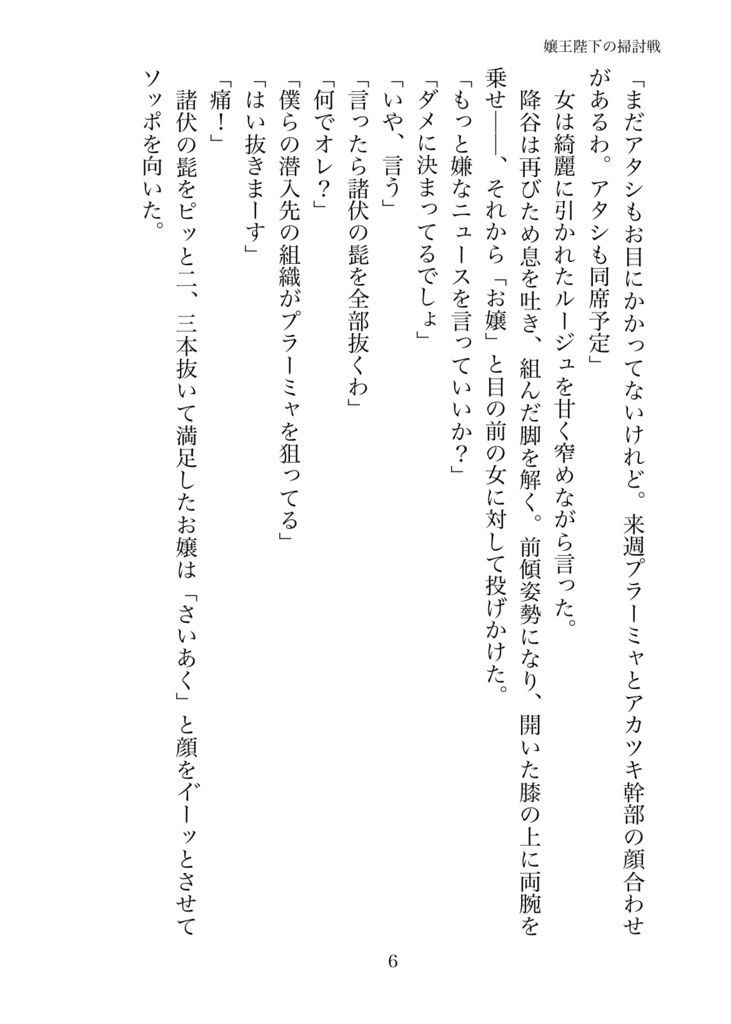 嬢王陛下の掃討戦
「まだアタシもお目にかかってないけれど。来週プラーミャとアカツキ幹部の顔合わせ
があるわ。アタシも同席予定」
女は綺麗に引かれたルージュを甘く窄めながら言った。
降谷は再びため息を吐き、組んだ脚を解く。前傾姿勢になり、開いた膝の上に両腕を
乗せ――、それから「お嬢」と目の前の女に対して投げかけた。
「もっと嫌なニュースを言っていいか？」
「ダメに決まってるでしょ」
「いや、言う」
「言ったら諸伏の髭を全部抜くわ」
「何でオレ？」
「僕らの潜入先の組織がプラーミャを狙ってる」
「はい抜きまーす」
「痛！」
諸伏の髭をピッと二、三本抜いて満足したお嬢は「さいあく」と顔をイ゙ーッとさせて
ソッポを向いた。
6